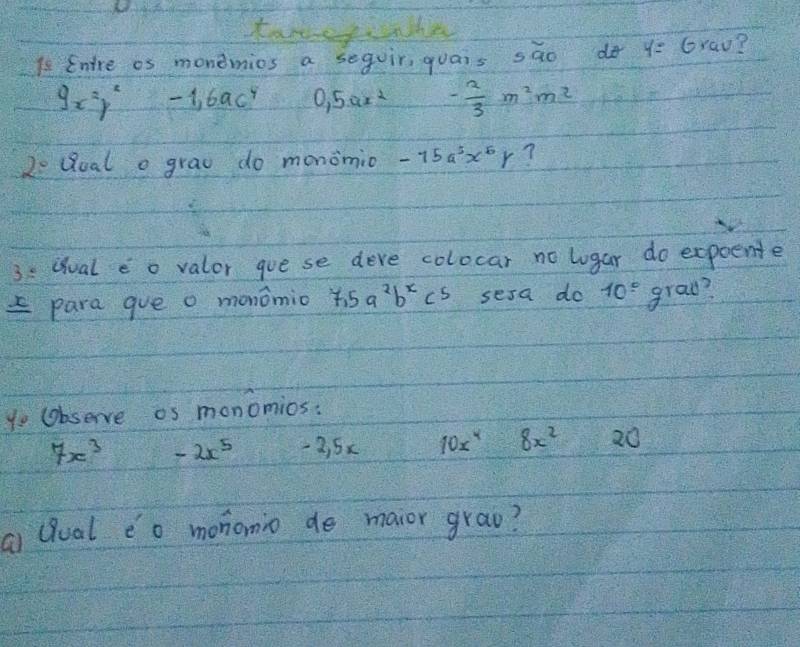 tarefinha
1º Entre os monômios a seguir, quais são do 4º Grau?
9x²y² -1,6ac⁴ 0,5ax² -2/3 m²m²
2º Qual o grau do monômio -15a³x⁶y?
3º Qual é o valor que se deve colocar no lugar do expoente
x para que o monômio 7,5a²bˣc5 sesa do 10º grau?
4º Observe os monômios:
7x³ -2x⁵ -2,5x 10x⁴ 8x² 20
a) Qual é o monômio de maior grau?